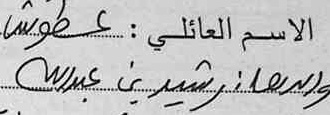 الاسم العائلي : عطوشا
والدها : رشيد بن عبدالله